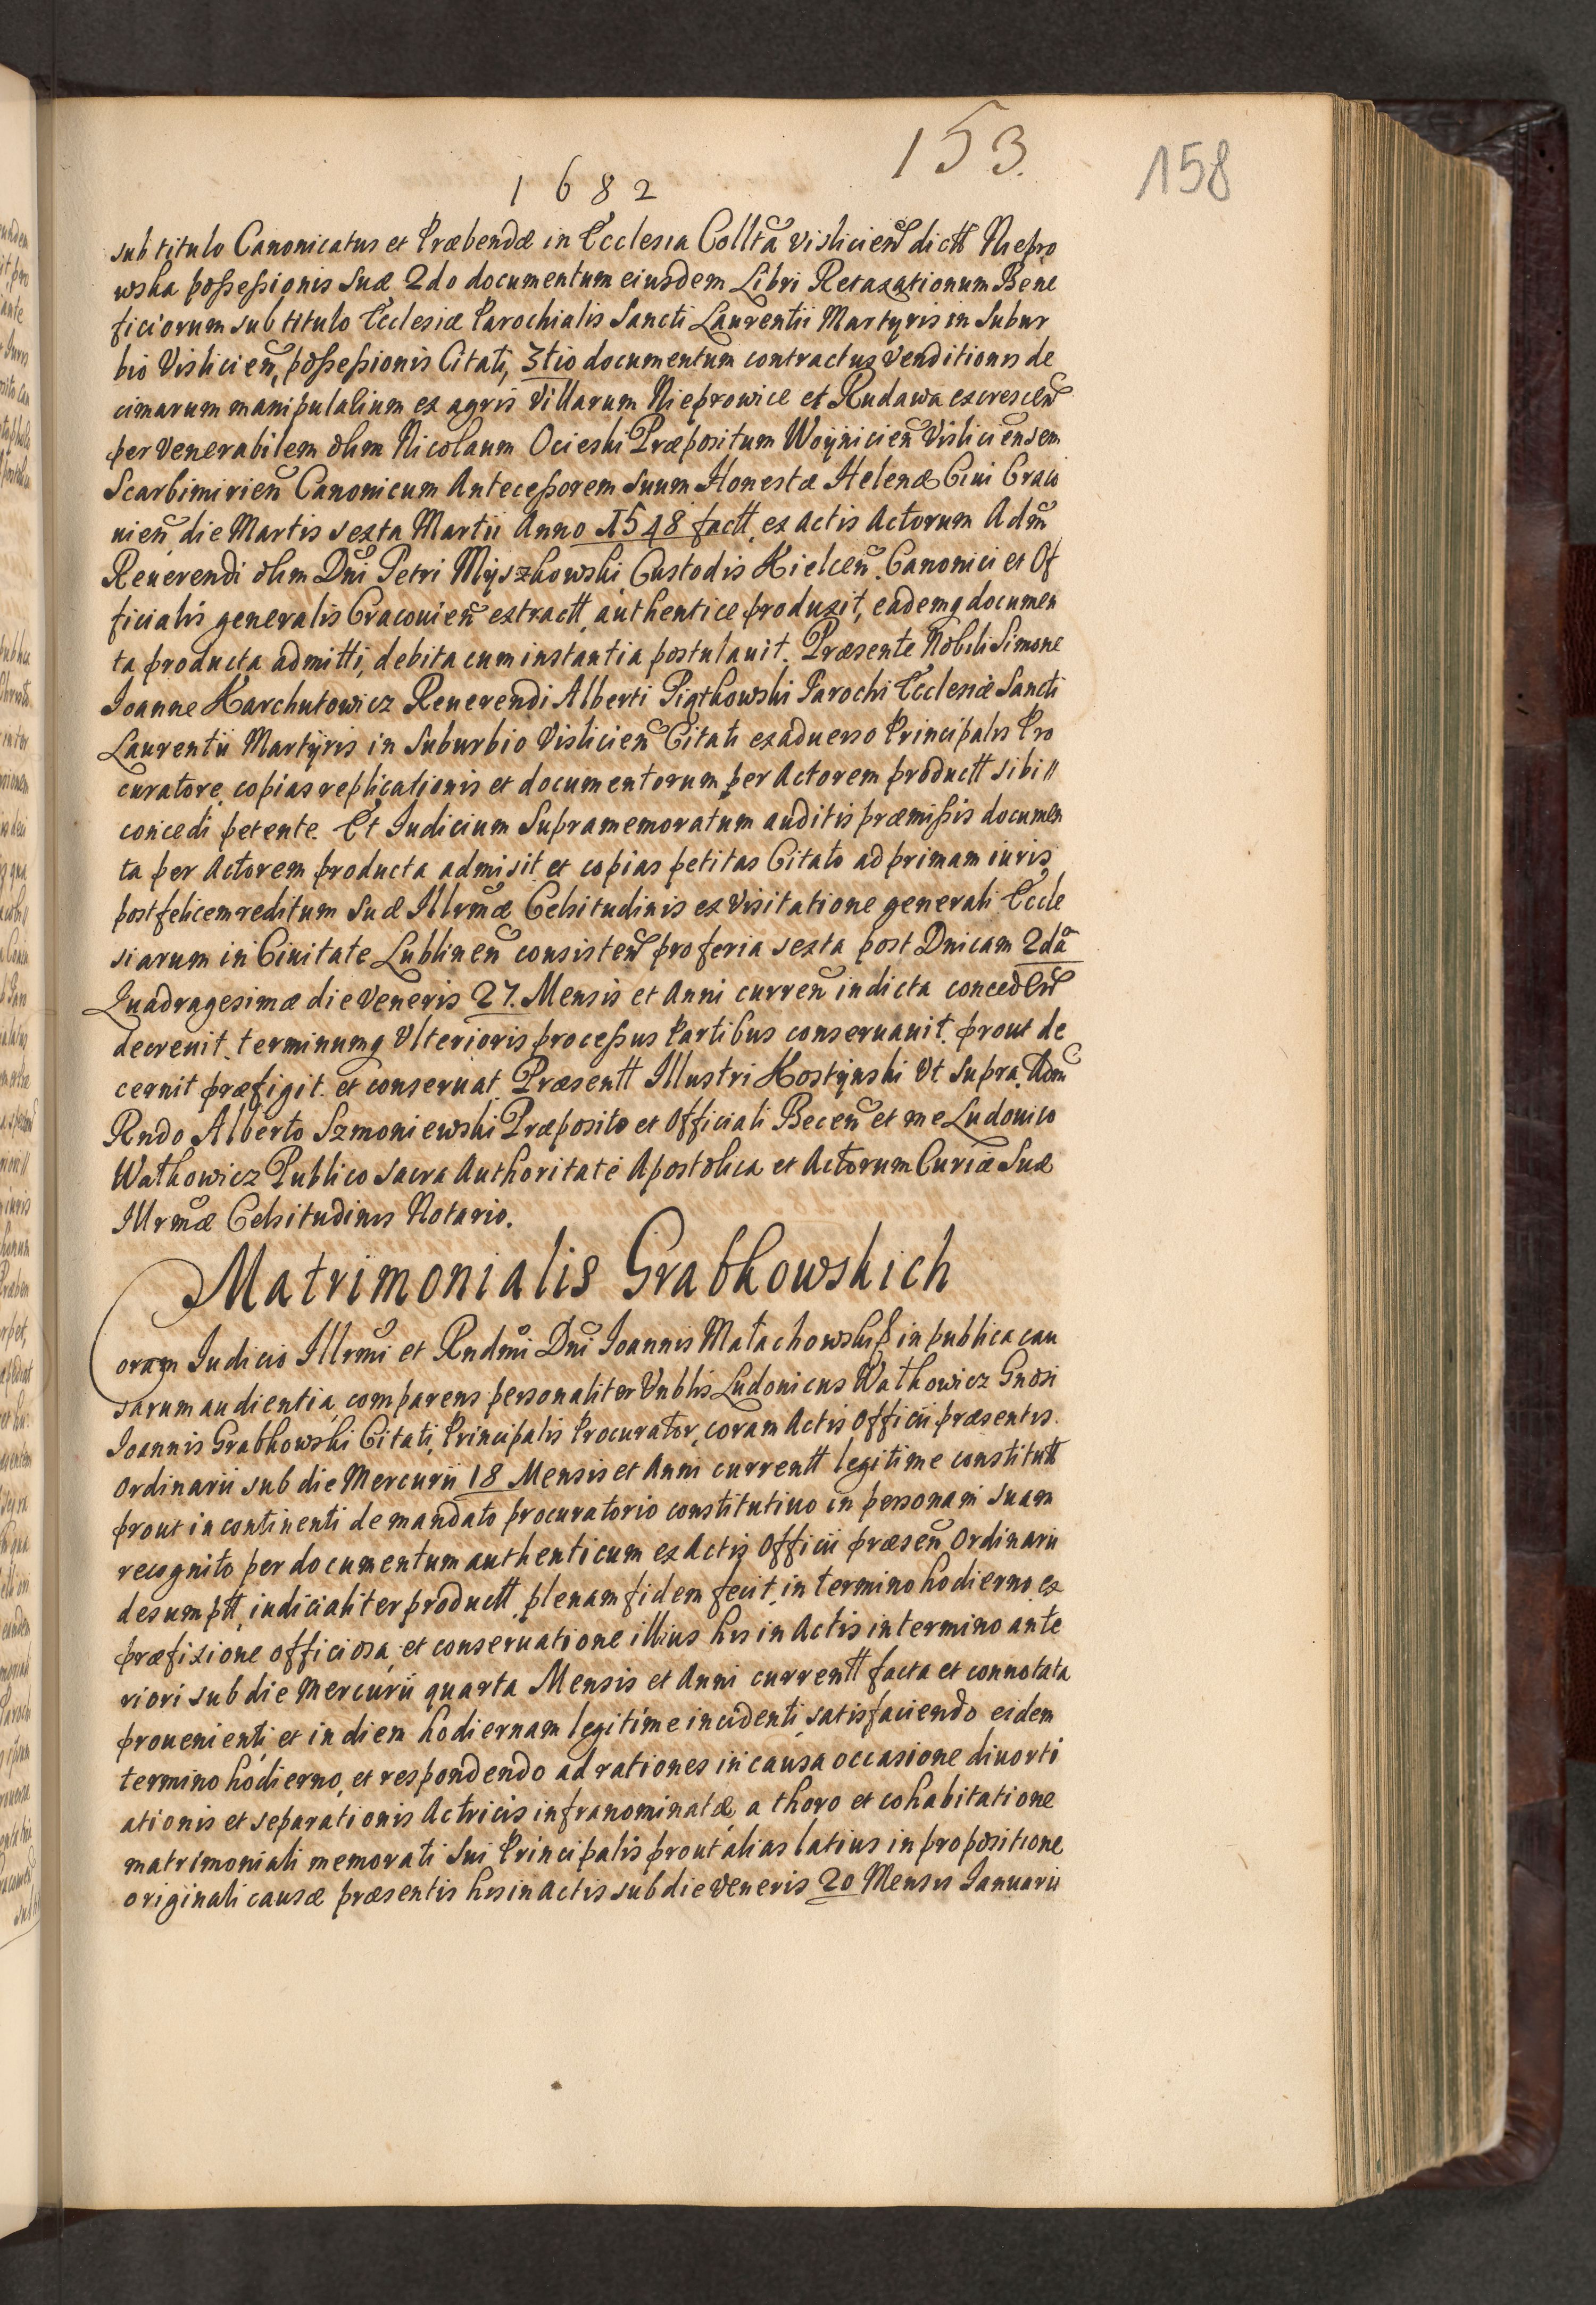 153.
158
1682
sub titulo Canonicatus et Præbendæ in Ecclesia Colltã Vislicień dictt Niepro
wska possessionis Suæ 2do documentum eiusdem Libri Retaxationum Bene
ficiorum sub titulo Ecclesiæ Parochialis Sancti Laurentii Martyris in Subur
bio Vislicień, possessionis Citati, 3tio documentum contractus venditionis de
cimarum manipulalium ex agris Villarum Nieprowice et Rudawa excresceń
per Venerabilem olim Nicolaum Ocieski Præpositum Woÿnicień Visliciensem
Scarbimirień Canonicum Antecessorem suum Honestæ Helenæ Civi Craco
uień die Martis sexta Martii Anno 1548 factt, ex Actis Actorum Adm̃
Reuerendi olim Dñi Petri Mÿszkowski Custodis Kielceń. Canonici et Of
ficialis generalis Cracouień extractt, authentice produxit, eademq documen
ta producta admitti, debita cum instantia postulauit. Præsente Nobili Simone
Ioanne Karchutowicz Reuerendi Alberti Piątkowski Parochi Ecclesiæ Sancti
Laurentii Martÿris in Suburbio Vislicień Citati ex aduerso Principalis Pro
curatore, copias replicationis et documentorum per Actorem productt sibi //
concedi petente. Et Iudicium Supramemoratum auditis præmissis documen
ta per Actorem producta admisit et copias petitas Citato ad primam iuris
post felicem reditum Suæ Illrmæ Celsitudinis ex Visitatione generali Eccle
siarum in Ciuitate Lublineń consisteń pro feria sexta post Dnicam 2dã
Quadragesimæ die Veneris 27. Mensis et Anni curreń indicta concedeń
decreuit, terminumq Vlterioris processus Partibus conseruauit. prout de
cernit præfigit. et conseruat. Præsentt Illustri Kostÿnski Vt Supra. Adm̃
Rndo Alberto Szmoniewski Præposito et Officiali Beceń et me Ludouico
Wałkowicz Publico Sacra Authoritate Apostolica et Actorum Curiæ Suæ
Illrmæ Celsitudinis Notario.
Matrimonialis Grabkowskich
Coram Iudicio Illrm̃i et Rndm̃i Dñi Ioannis Małachowski p in publica cau
sarum audientia, comparens personaliter Vnblis Ludouicus Wałkowicz Gnosi
Ioannis Grabkowski Citati, Principalis Procurator, coram Actis Officii præsentis.
Ordinarii sub die Mercurii 18 Mensis et Anni currentt legitime constitutt
prout in continenti de mandato procuratorio constitutiuo in personam suam
recognito, per documentum authenticum ex Actis Officii præseń Ordinarii
desumptt, iudicialiter productt, plenam fidem fecit, in termino hodierno ex
præfixione officiosa, et conseruatione illius his in Actis in termino ante
riori sub die Mercurii quarta Mensis et Anni currentt facta et connotata
prouenienti, et in diem hodiernam legitime incidenti, satisfaciendo eidem
termino hodierno, et respondendo ad rationes in causa occasione diuorti
ationis et separationis Actricis infranominatæ, a thoro et cohabitatione
matrimoniali memorati Sui Principalis prout alias latius in propositione
originali causæ præsentis his in Actis sub die Veneris 20 Mensis Ianuarii